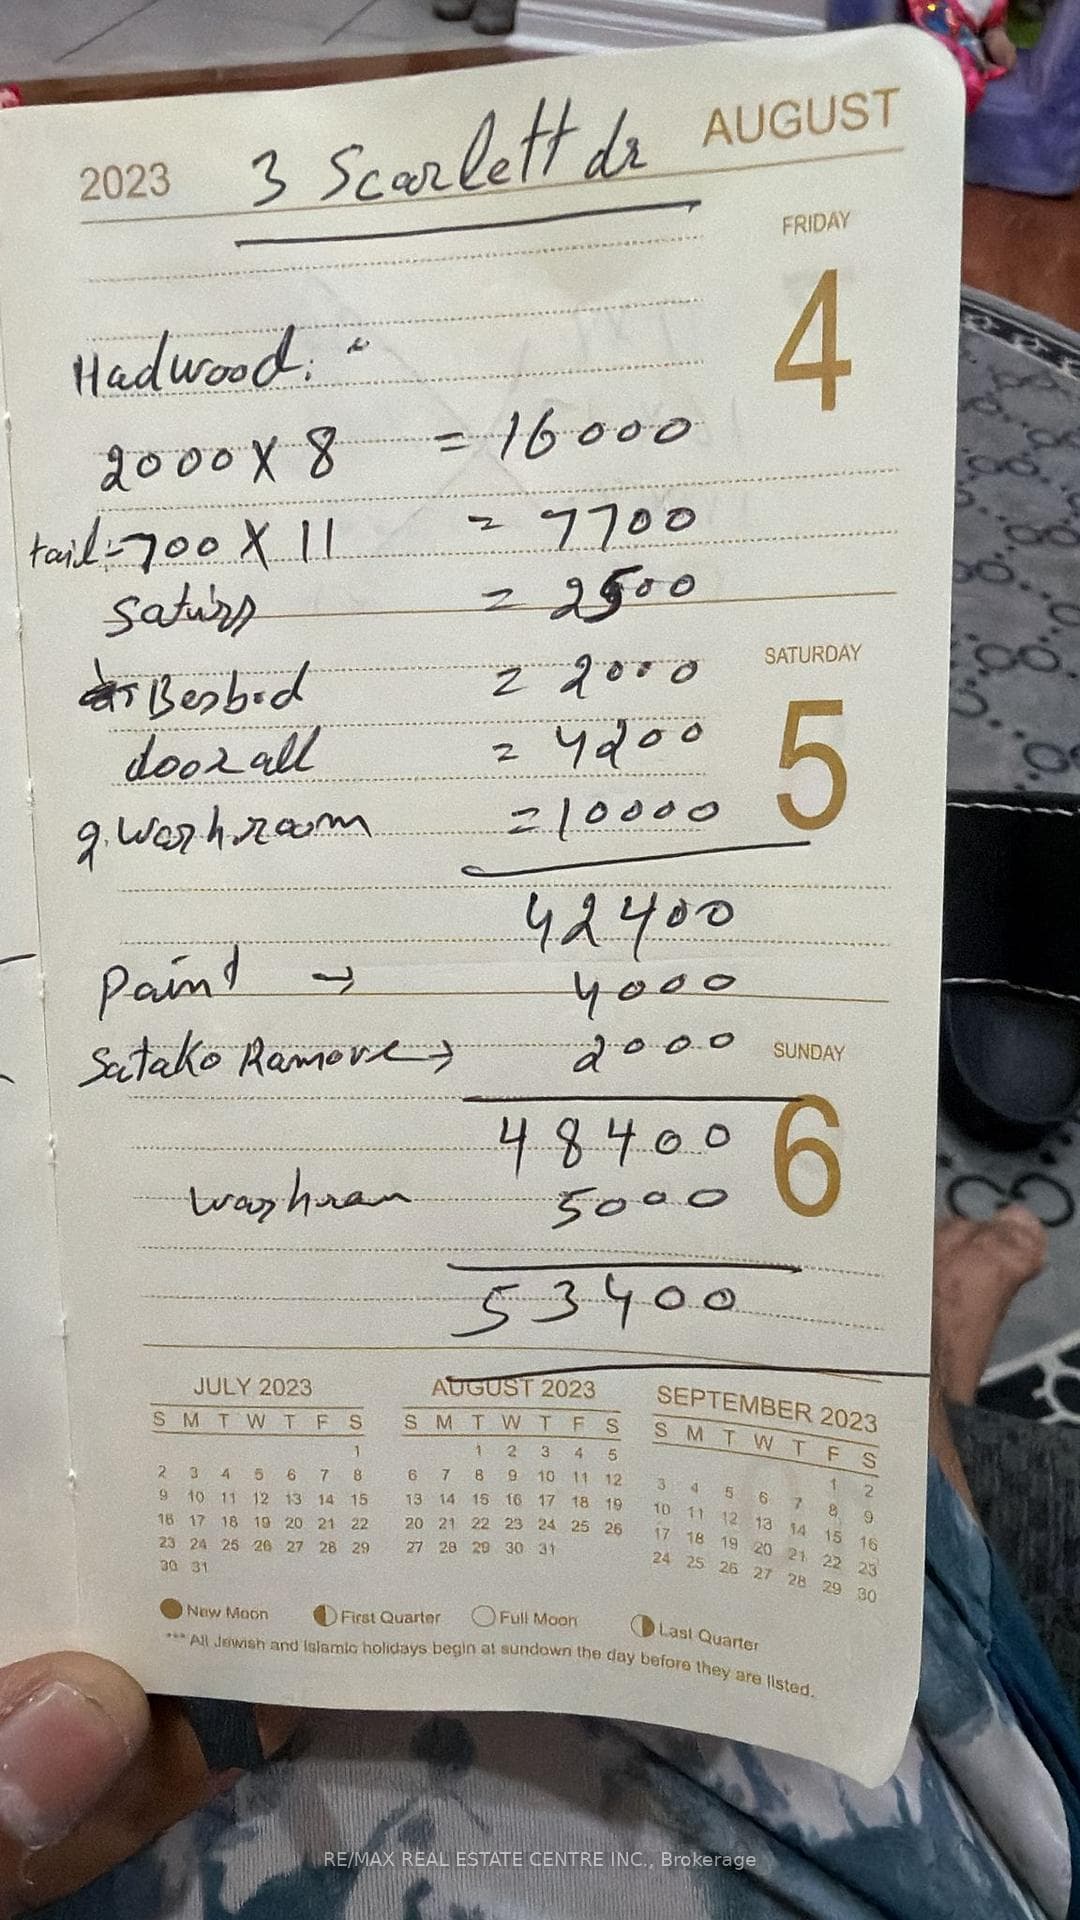 2023 3 Scarlett dr AUGUST
FRIDAY
4
Hadwood:
2000 X 8 = 16000
tail:- 700 X 11 = 7700
= 2500
SATURDAY
5
Besbod = 2000
door all = 4200
2. washroom = 10000
42400
Paint → 4000
Satako Ramove → 2000
SUNDAY
6
48400
washroan 5000
53400
JULY 2023
S M T W T F S
1
2 3 4 5 6 7 8
9 10 11 12 13 14 15
16 17 18 19 20 21 22
23 24 25 26 27 28 29
30 31
AUGUST 2023
S M T W T F S
1 2 3 4 5
6 7 8 9 10 11 12
13 14 15 16 17 18 19
20 21 22 23 24 25 26
27 28 29 30 31
SEPTEMBER 2023
S M T W T F S
1 2
3 4 5 6 7 8 9
10 11 12 13 14 15 16
17 18 19 20 21 22 23
24 25 26 27 28 29 30
New Moon First Quarter Full Moon Last Quarter
***All Jewish and Islamic holidays begin at sundown the day before they are listed.
RE/MAX REAL ESTATE CENTRE INC., Brokerage